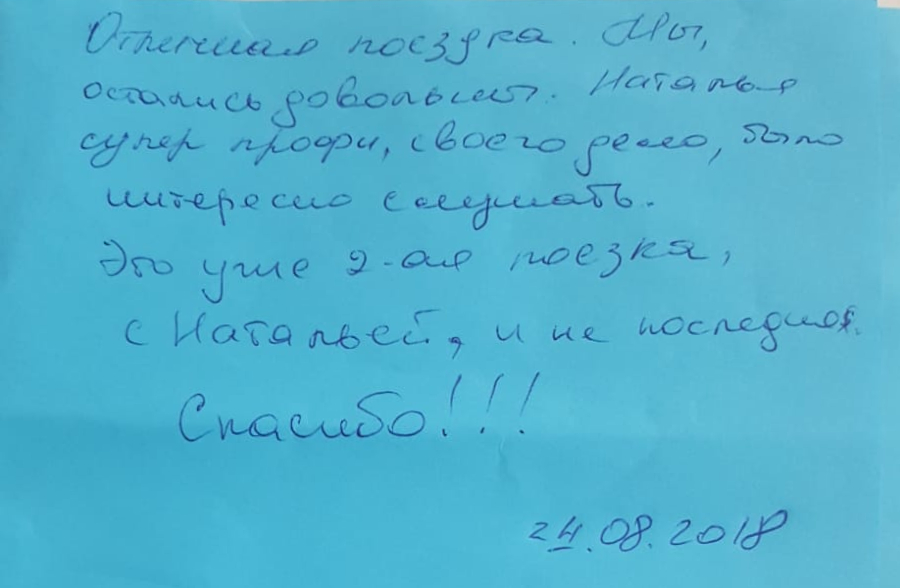 Отличная поездка. Мы,
остались довольны. Наталья
супер профи, своего дело, было
интересно слушать.
Это уже 2-ая поезка,
с Натальей, и не последняя.
Спасибо!!!
24.08.2018